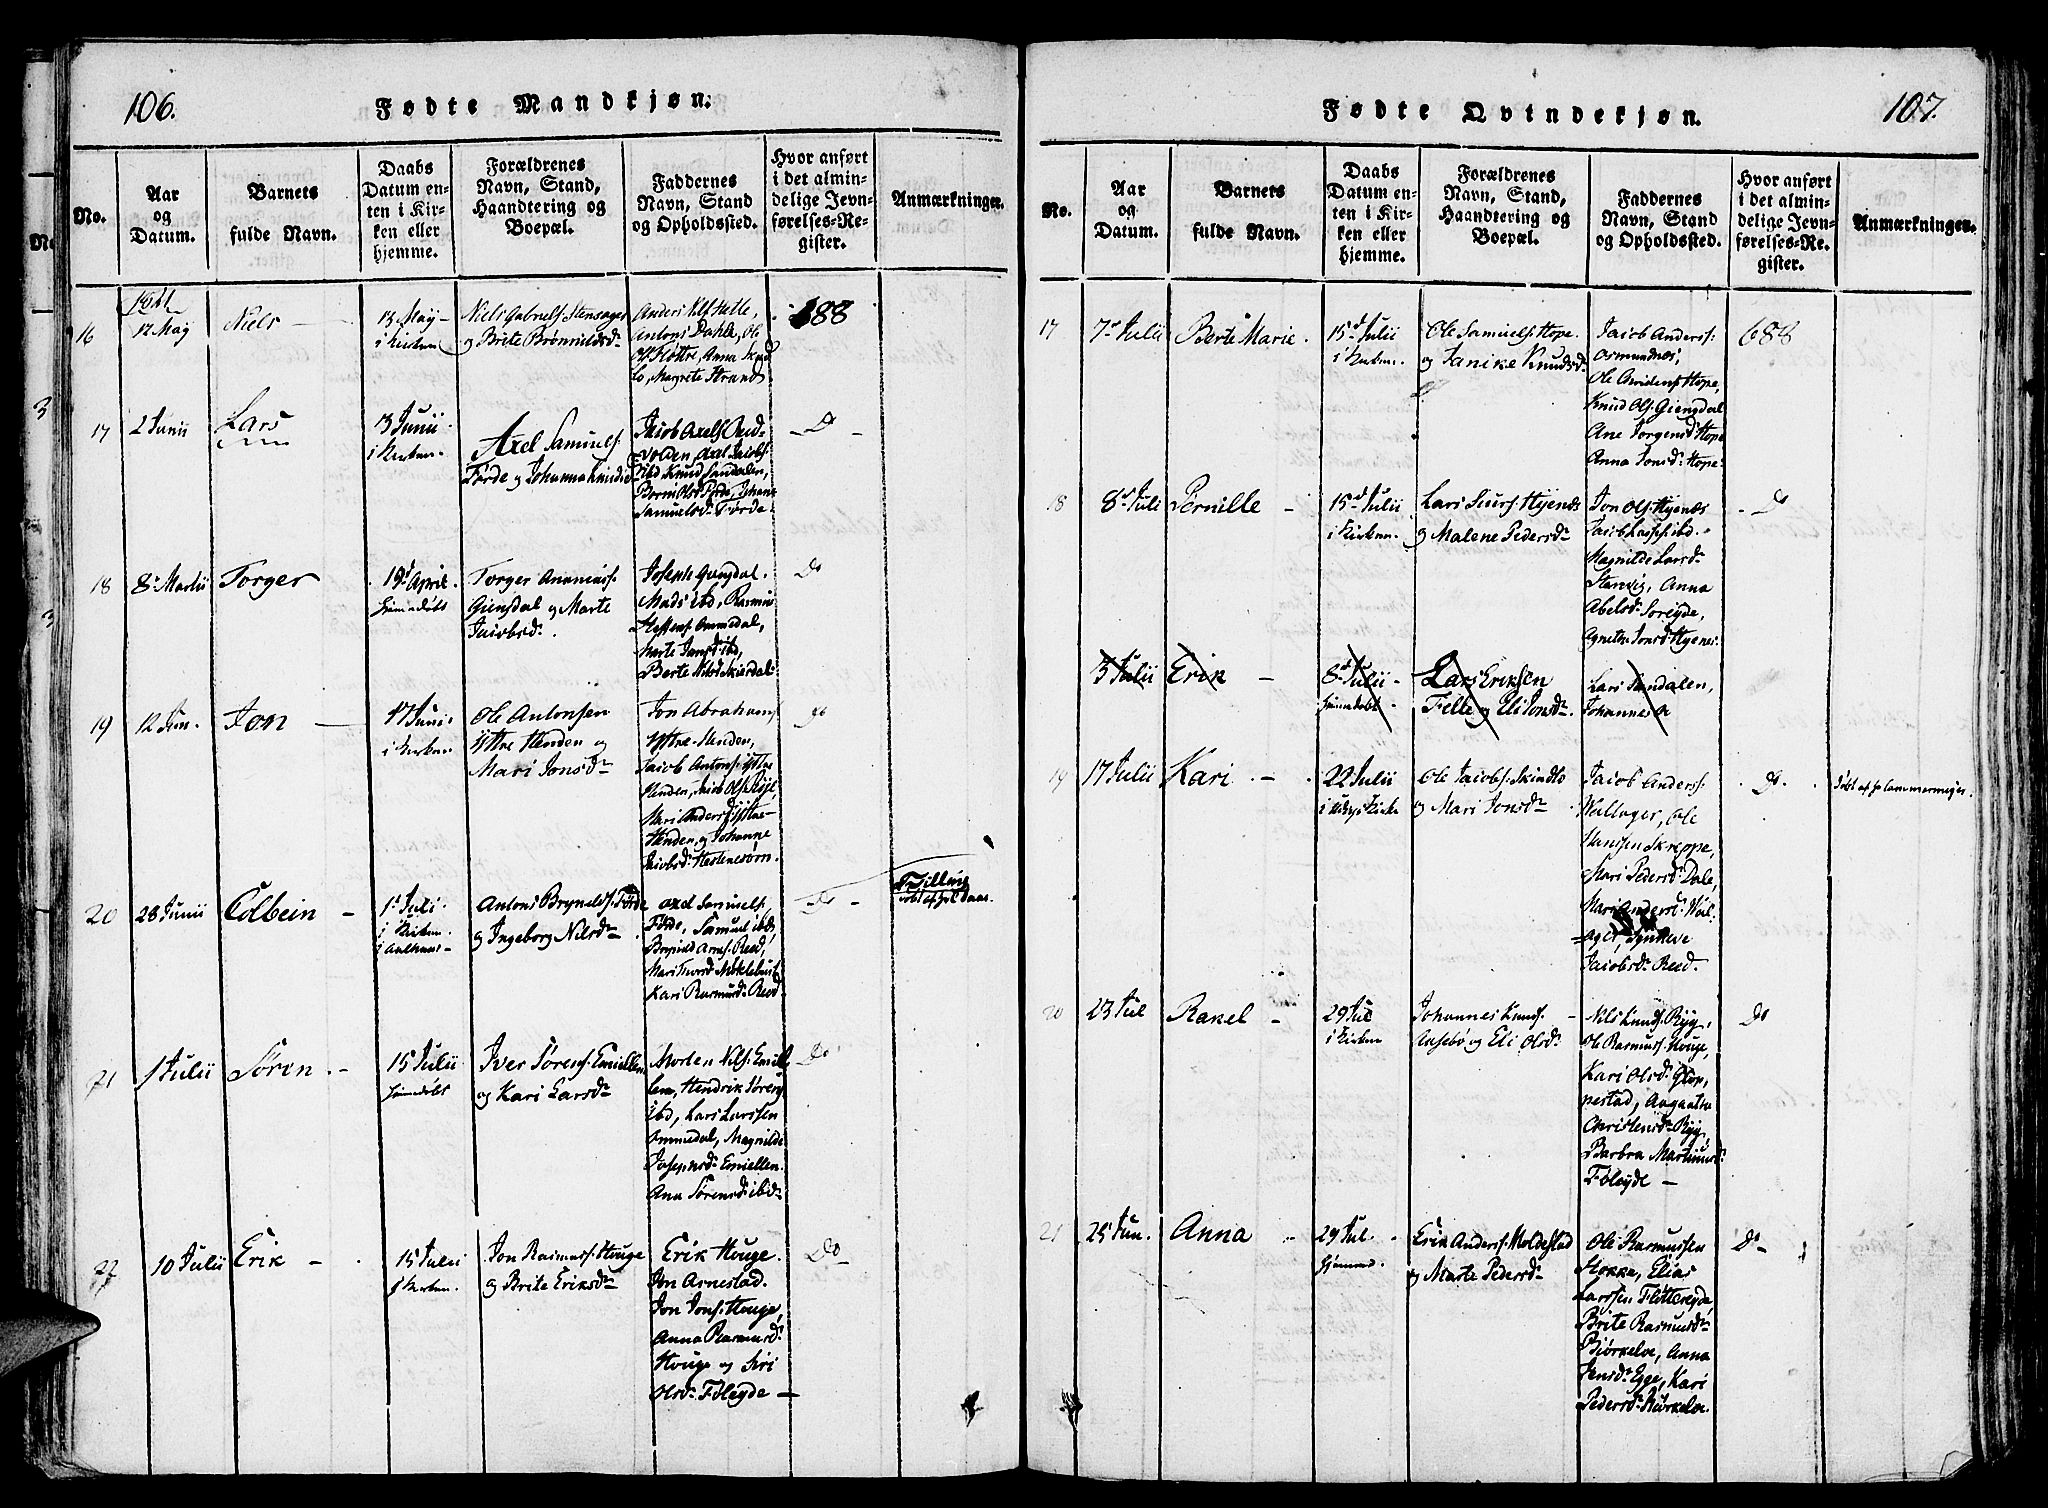 106.
Fødte Mandkjøn.
No.
Aar
og
Datum.
Barnets
fulde Navn.
Daabs
Datum en-
ten i Kir-
ken eller
hjemme.
Forældrenes
Navn, Stand,
Haandtering og
Boepæl.
Faddernes
Navn, Stand
og Opholdssted.
Hvor anført
i det almin-
delige Jevn-
førelses-Re-
gister.
Anmærkninger.
16
12 Maj
Niels
13 Maj
i Kirken
Niels Gabriels Stensager
og Brite
Helle,
Antoni Dahle, Ole
Anna
Margrete Strand
688
17
2 Junii
Lars
13 Junii
i Kirken
Axel Samuels.
Førde og Johanna
Jacob Axels
Axel Jacobs.
ibd Knud Sandalen,
Førde, Johane
Samuelsdr Førde
Do
18
8de Martii
Torger
19d April
hjemedøbt
Torger
Giengdal og Marte
Jacobsdr.
Joseph Gengdal.
Mads ibd, Rasmus
Ommedal,
Marte Jansd ibd,
Berte
Do
19
12 Jun.
Jon
17 Juni
i Kirken
Ole Antonsen
Yttre Henden og
Mari Jonsdr
Jon Abrahams
Yttre-Henden,
Jacob Antons. Yttre
Henden, Jacob Ols.
Mari Andersd Yttre-
Henden, og Johanne
Jacobsdr Hestenesørn.
Do
20
28 Junii
Colbein
1d Juli
i Kirken
i
Antoni Brynelds. Førde
og Ingeborg Nilsdr
Axel Samuels.
Førde, Samuel ibd,
Brynild Arnes. Reed,
Mari Myklebust
Kari Rasmusdr Reed
Do
Tilling
døbt af
21
1 Julii
Søren
15 Julii
hjemedøbt
Iver Sørens. Emiellen
og Kari Larsdr
Morten Nils. Emiel-
len, Hendrik Sørens
ibd, Lars Larssen
Ommedal, Magnilde
Josephsdr Emiellen.
Ana Sørensdr ibid
Do
22
10 Julii
Erik
15 Julii
i Kirken.
Jon Rasmus. Houge
og Brite Eriksdr
Erik Houge.
Jon Arnestad.
Jon Jons. Houge,
Anna Rasmusdr
Houge og Siri
Olsdr Føleyde
Do
107.
Fødte Qvindekjøn.
No.
Aar
og
Datum.
Barnets
fulde Navn.
Daabs
Datum en-
ten i Kir-
ken eller
hjemme.
Forældrenes
Navn, Stand,
Haandtering og
Boepæl.
Faddernes
Navn, Stand
og Opholdssted.
Hvor anført
i det almin-
delige Jevn-
førelses-Re-
gister.
Anmærkninger.
17
7de Julii
Berte Marie
15d Julii
i Kirken.
Ole Samuels. Hope.
og Janike Knudsdr
Jacob Anders.
Osmundnes,
Ole Hope,
Knud Ols. Giengdal
Ane Jorgensd Hope
Anna Jonsdr Hope
688
18
8de Juli
Pernille
15d Julii
i Kirken.
Lars Siurs. Hyenes
og Malene Pedersdr
Jon Ols. Hyenes
Jacob ibd.
Magnilde Larsdr
Anna
Abelsdr Soreyde,
Agnethe Jonsd Hyenes
Do
3 Julii
Erik
8d Julii
hjemedøbt
Lars Eriksen
Felle og Eli Jonsdr.
Lars Sandalen,
Johannes
19
17 Julii
Kari
22 Julii
i Kirke
Ole Jacobs. Skindlo
og Mari Jonsdr
Jacob Anders.
Wallager, Ole
Hansen Skreppe,
Mari Pedersdr Dale,
Mari Andersdr Wal-
ager, Synneve
Jacobsdr Reed.
Do.
døbt af Hr Lammermeyer.
20
23 Jul
Rakel
29 Jul
i Kirken
Johannes Knuds.
Ansebø og Eli Olsdr
Nils Knuds. Ryg,
Ole Rasmus. Houge,
Kari Olsdr Glop-
pestad, Augaatta
Christensdr Ryg
Barbra
Føleyde
Do
21
25 Jun.
Anna
29 Jul.
hjemme
Erik Anders. Moldestad
og Marte Pedersdr
Ole Rasmussen
Stokke, Elias
Larssen Fløttereyde,
Brite Rasmusdr
Biørkelve, Anna
Jensdr Egge, Kari
Pedersdr Biørkelve.
Do